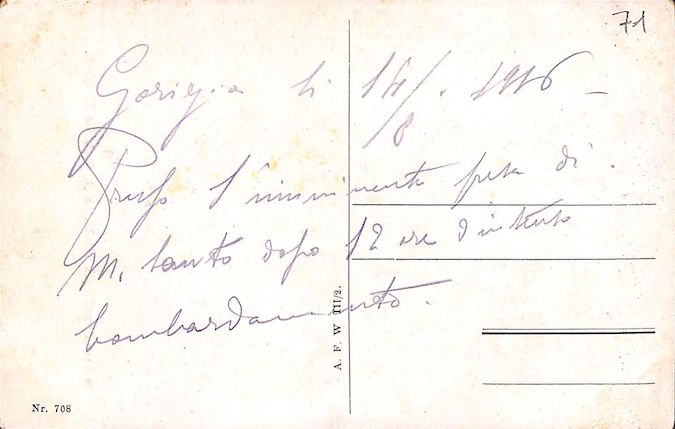 71
Gorizia li 14/8. 1916 –
Presso l'imminente presa di
M. Santo dopo 12 ore d'intenso
bombardamento.
A. F. W. III/2.
Nr. 708